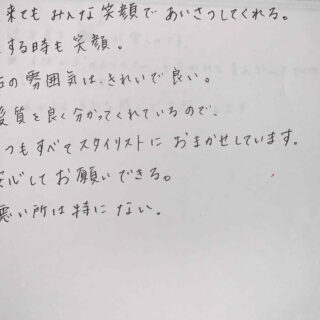 来てもみんな笑顔であいさつしてくれる。
する時も笑顔。
の雰囲気は、きれいで良い。
髪質を良く分かってくれているので、
つもすべてスタイリストにおまかせしています。
心してお願いできる。
悪い所は特にない。